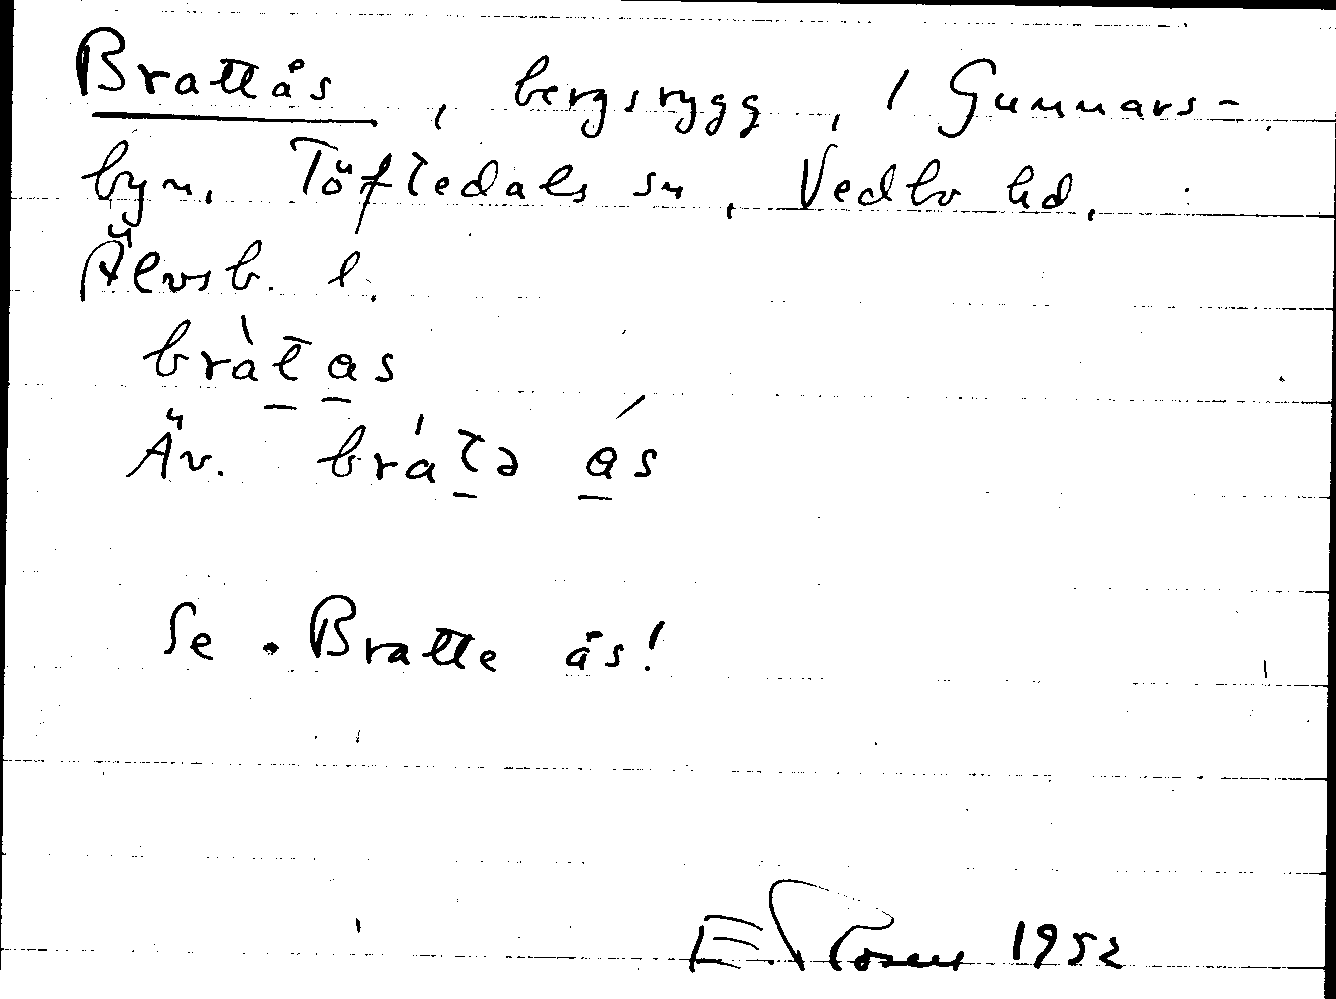 Brattås, bergsrygg, 1 Gunnars-
byn, Töftedals sn, Vedbo hd,
Älvsb. l.
bràt̲a̲s
Äv. brát̲ə á̲s
Se . Bratte ås!
E. 1952